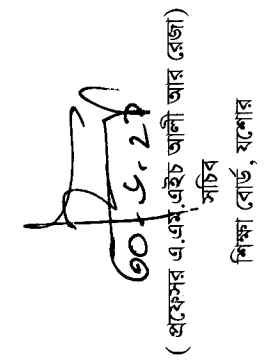 ( প্রফেসর এ.এম.এইচ আলী আর রেজা)
সচিব
শিক্ষা বোর্ড, যশোর